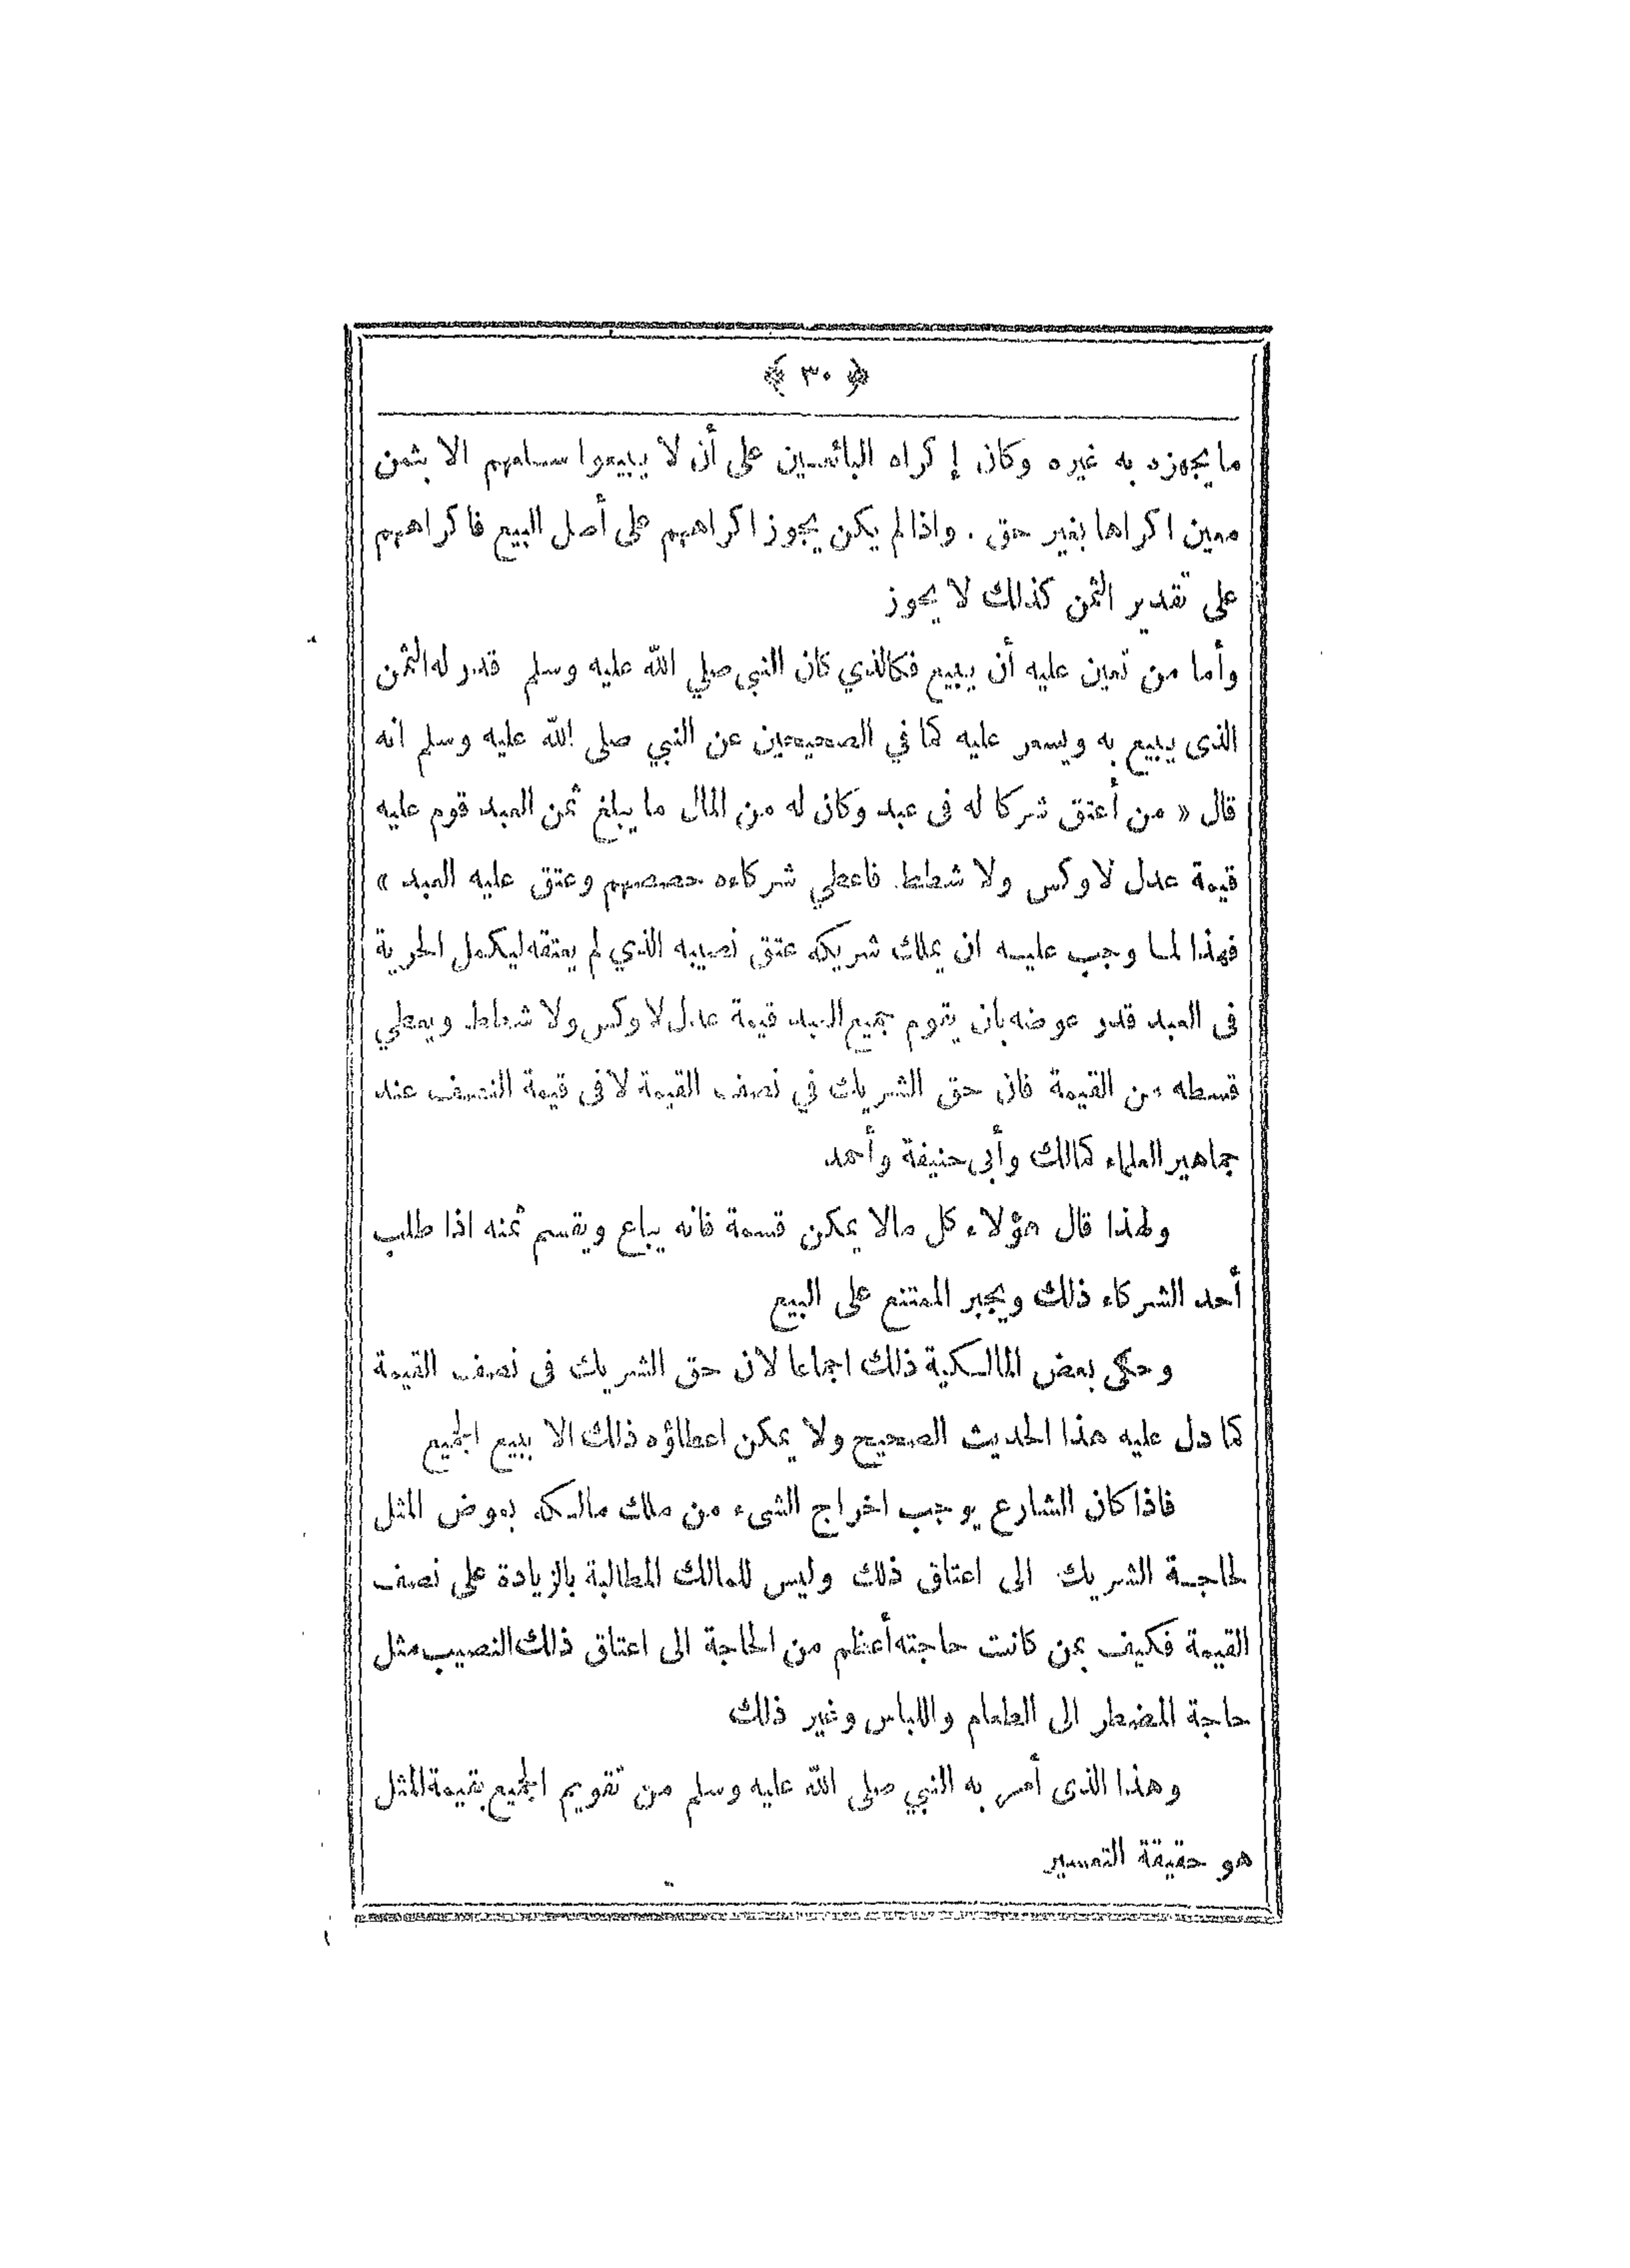 ﴿ ٣٠ ﴾
ما يجهزه به غيره وكان إكراه البائعين على أن لا يبيعوا سلعهم الا بثمن
معين اكراها بغير حق . واذا لم يكن يجوز اكراههم على أصل البيع فاكراههم
على تقدير الثمن كذلك لا يجوز
وأما من تعين عليه أن يبيع فكالذي كان النبي صلي الله عليه وسلم قدر له الثمن
الذى يبيع به ويسعر عليه كما في الصحيحين عن النبي صلى الله عليه وسلم انه
قال « من أعتق شركا له فى عبد وكان له من المال ما يبلغ ثمن العبد قوم عليه
قيمة عدل لا وكس ولا شطط. فاعطي شركاءه حصصهم وعتق عليه العبد »
فهذا لما وجب عليه ان يملك شريكه عتق نصيبه الذي لم يعتقه ليكمل الحرية
فى العبد قدر عوضه بان يقوم جميع العبد قيمة عدل لا وكس ولا شطط ويعطي
قسطه من القيمة فان حق الشريك في نصف القيمة لا فى قيمة النصف عند
جماهير العلماء كمالك وأبى حنيفة وأحمد
ولهذا قال هؤلاء كل مالا يمكن قسمة فانه يباع ويقسم ثمنه اذا طلب
أحد الشركاء ذلك ويجبر الممتنع على البيع
وحكى بعض المالكية ذلك اجماعا لان حق الشريك فى نصف القيمة
كما دل عليه هذا الحديث الصحيح ولا يمكن اعطاؤه ذلك الا ببيع الجميع
فاذا كان الشارع يوجب اخراج الشىء من ملك مالكه بعوض المثل
لحاجة الشريك الى اعتاق ذلك وليس للمالك المطالبة بالزيادة على نصف
القيمة فكيف بمن كانت حاجته أعظم من الحاجة الى اعتاق ذلك النصيب مثل
حاجة المضطر الى الطعام واللباس وغير ذلك
وهذا الذى أمر به النبي صلى الله عليه وسلم من تقويم الجميع بقيمة المثل
هو حقيقة التسعير